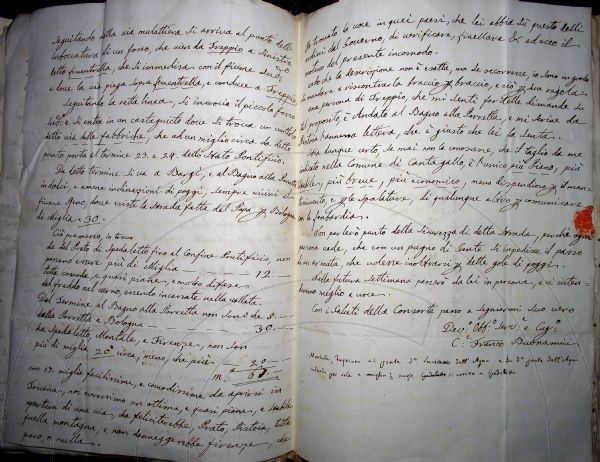 seguitando detta via mulattiera si arriva al punto dell'
imboccatura di un fosso, che vien da Treppio a sinistra
detto fiumentrella, che s'immedesima con il fiume
e dove la via piega sopra fiumentrella, e conduce a Treppio
Seguitando la retta linea, si incrocia il piccolo fosso
e si entra in un castagneto dove si trova un
detto via delle fabbriche, che ad un miglio circa da detto
punto porta al termine 23. e 24. dello Stato Pontificio.
Da detto termine si va a Bargi, e al Bagno alla Porretta
indolci, e amene inclinazioni di poggi, sempre vicini al
fiume Reno, dove esiste la strada fatta dal Papa p. Bologna
di Miglia 30.
Ciò premesso, io trovo
che dal Prato di Spedaletto fino al Confine Pontificio, non
possono essere più di Miglia — 12. —
tutte comode, e quasi piane, e molto difese
dal freddo nel verno, essendo incassate nella vallata.
Dal Termine al Bagno alla Porretta non sono che 5. —
dalla Porretta a Bologna — 30. —
da Spedaletto, Montale, e Firenze, non son
più di miglia 20 circa, meno, che più — 20. —
m.a 67
con 17 miglia facilissime, e comodissime da aprirsi in
Toscana, noi avressimo un ottima, e quasi piana, e stabile
apertura di una via, che feliciterebbe, Prato, Pistoia, tutta
quella montagna, e non danneggerebbe Firenze, che
poco, o nulla.
Ho trovato la voce in quei paesi, che lei abbia su questo delli
ordini del Governo, di verificare, livellare & ed ecco il
motivo del presente incomodo.
caso che la descrizione non è esatta, ma se occorresse, io sono in grado
di mandare a rimontarla braccio p. braccio, e ciò p. sua regola
una persona di Treppio, che mi sentì far tali dimande su
tal proposito è Andato al Bagno alla Porretta, e mi scrive da
Pistoia l'annessa lettera, che è giusto che lei la senta.
Stia dunque certo, se mai non la conoscesse, che il taglio da me
indicato nella Comune di Cantagallo è l'unico più Piano, più
stabile, più breve, più economico, meno dispendioso p. il man=
tenimento, e p. le Spalature, di qualunque altro p. comunicare
con la lombardia.
Non parlerò punto della sicurezza di detta Strada, perchè ogni
persona vede, che con un pugno di Gente si impedisce il passo
in un armata, che volesse inoltrarsi p. delle gole di poggi.
della futura settimana passerò da lei in persona, e ci inten=
deremo meglio a voce.
Con i saluti della Consorte passo a segnarmi suo vero
Dev.o Obb.o Serv.e e Cug.o
C. Franco Buonamici